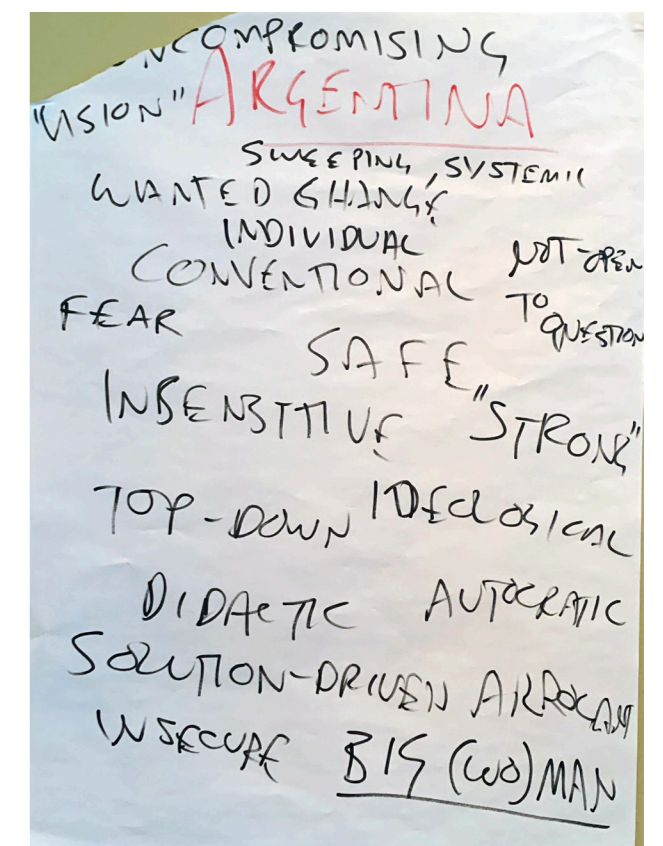 UNCOMPROMISING
"VISION" ARGENTINA
SWEEPING, SYSTEMIC
WANTED CHANGE
INDIVIDUAL
CONVENTIONAL NOT-OPEN
FEAR TO QUESTION
SAFE
INSENSITIVE "STRONG"
TOP-DOWN IDEOLOGICAL
DIDACTIC AUTOCRATIC
SOLUTION-DRIVEN ARROGANT
INSECURE BIG (WO)MAN